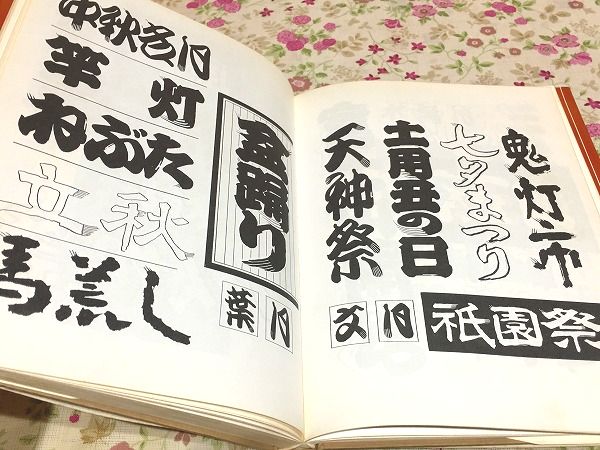 鬼灯市
七夕まつり
土用丑の日
天神祭
祇園祭
文月
盆踊り
葉月
中秋名月
竿灯
ねぶた
立秋
馬荒し